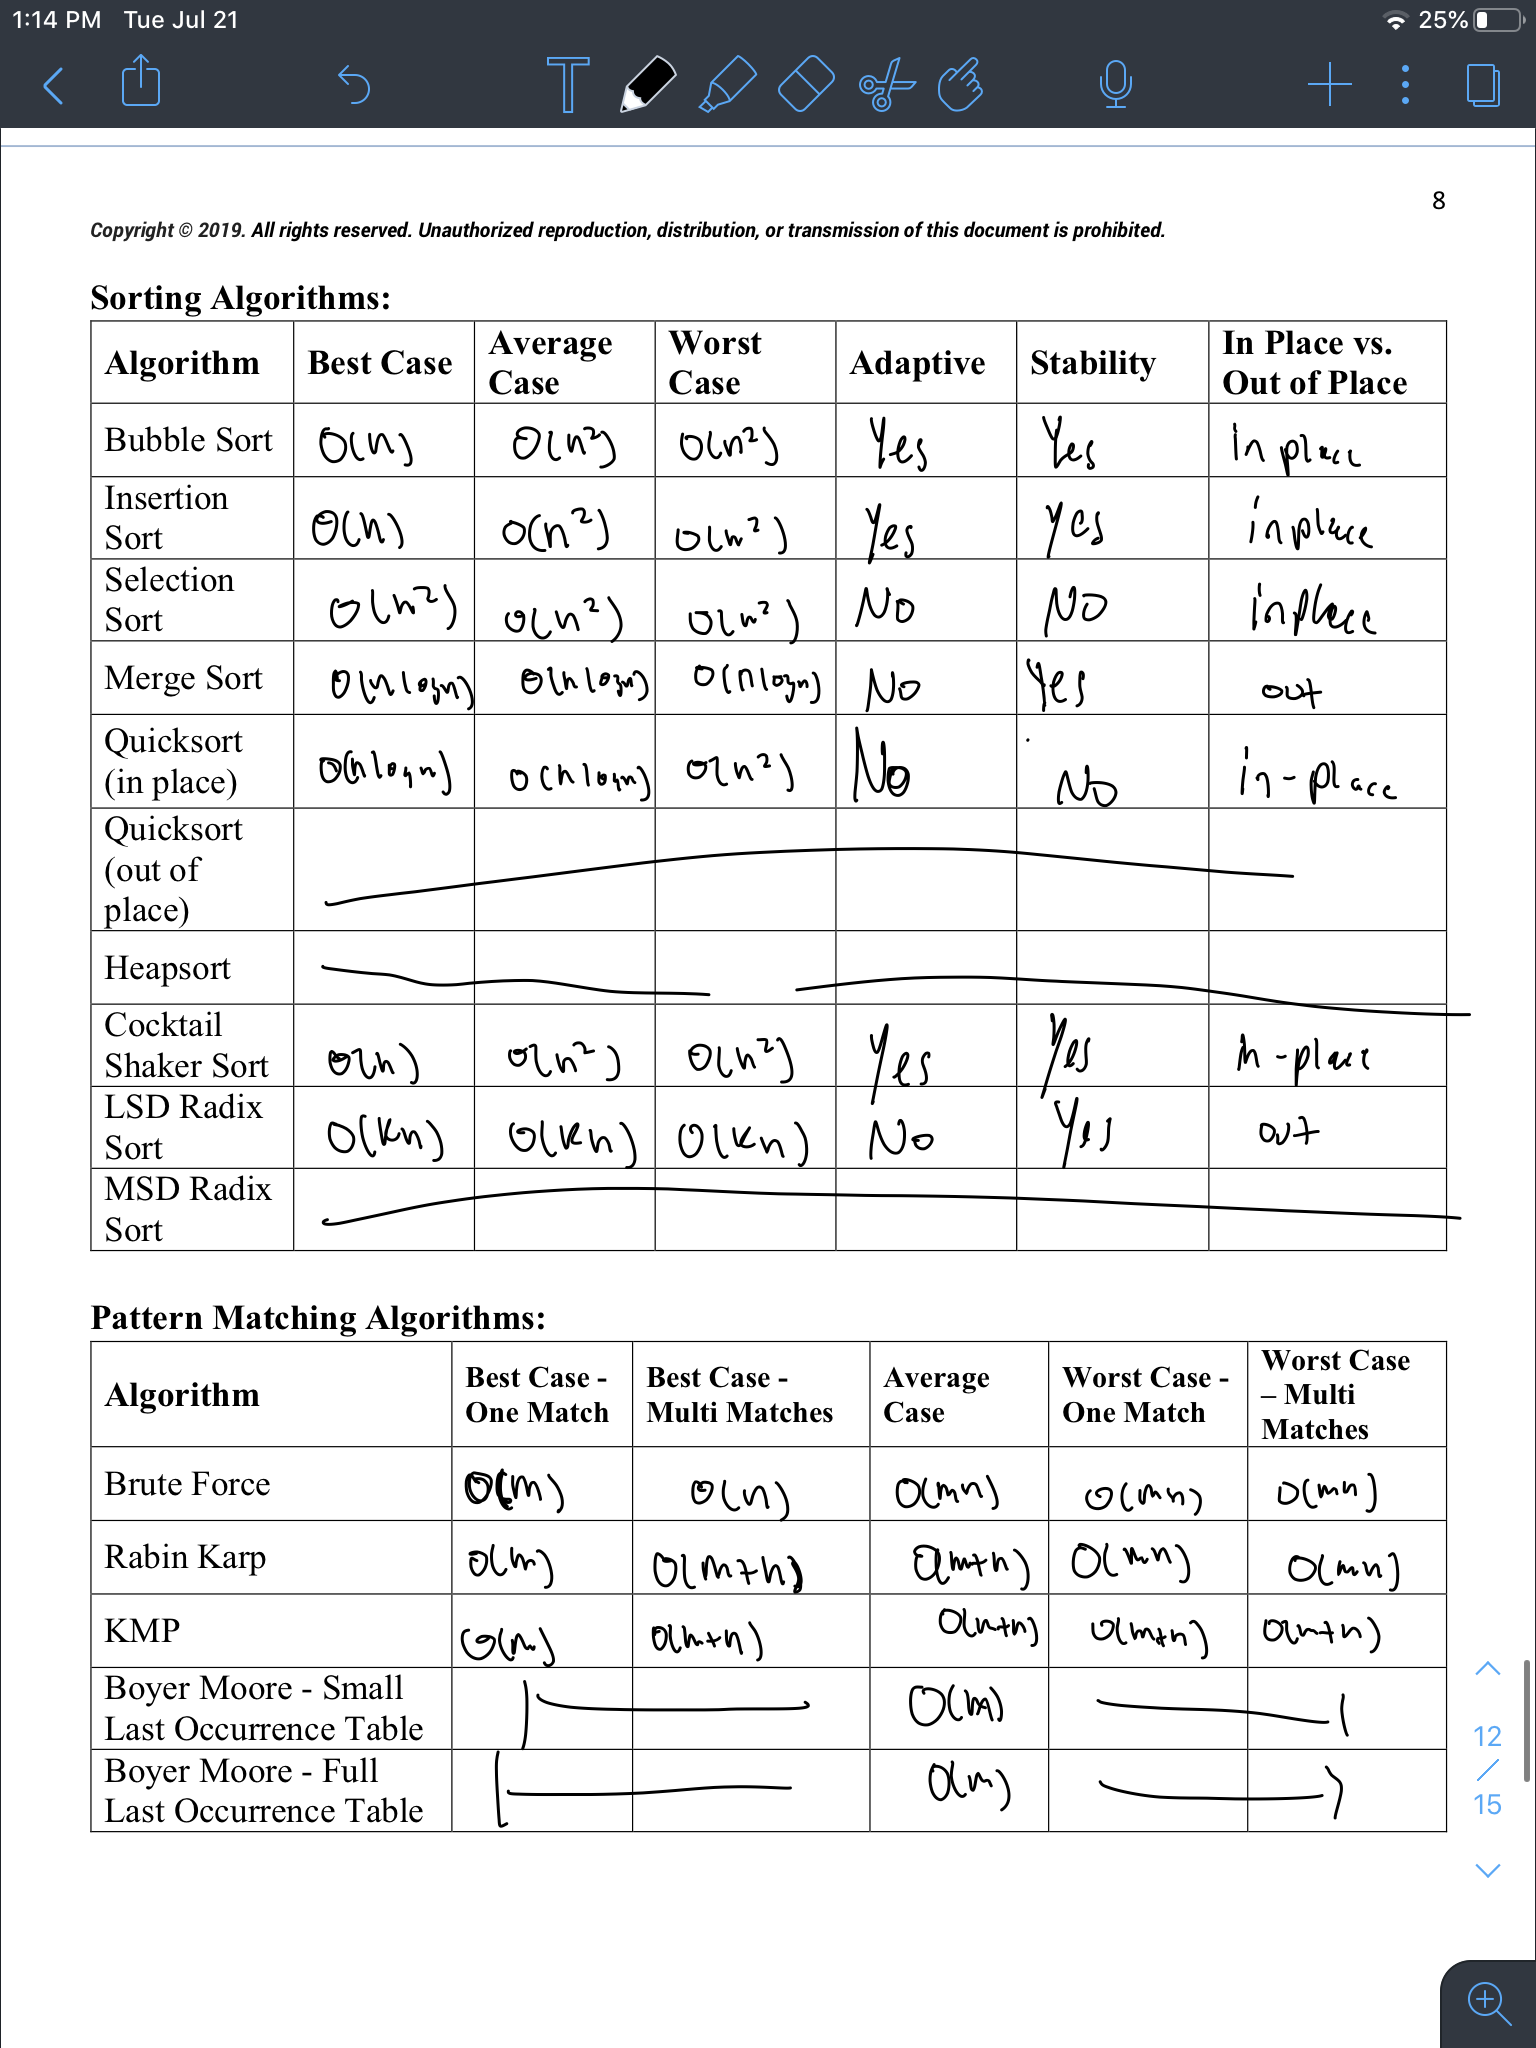 1:14 PM Tue Jul 21 25%
8
Copyright © 2019. All rights reserved. Unauthorized reproduction, distribution, or transmission of this document is prohibited.
Sorting Algorithms:
Algorithm Best Case Average Case Worst Case Adaptive Stability In Place vs. Out of Place
Bubble Sort O(n) O(n²) O(n²) Yes Yes In place
Insertion Sort O(n) O(n²) O(n²) Yes yes inplace
Selection Sort O(n²) O(n²) O(n²) No NO inplace
Merge Sort O(nlogn) O(nlogn) O(nlogn) No Yes out
Quicksort (in place) O(nlogn) O(nlogn) O(n²) No No in-place
Quicksort (out of place)
Heapsort
Cocktail Shaker Sort O(n) O(n²) O(n²) Yes Yes in-place
LSD Radix Sort O(kn) O(kn) O(kn) No Yes out
MSD Radix Sort
Pattern Matching Algorithms:
Algorithm Best Case - One Match Best Case - Multi Matches Average Case Worst Case - One Match Worst Case – Multi Matches
Brute Force O(m) O(n) O(mn) O(mn) O(mn)
Rabin Karp O(m) O(m+n) O(m+n) O(mn) O(mn)
KMP O(m) O(m+n) O(m+n) O(m+n) O(m+n)
Boyer Moore - Small Last Occurrence Table O(m)
Boyer Moore - Full Last Occurrence Table O(m)
12
/
15